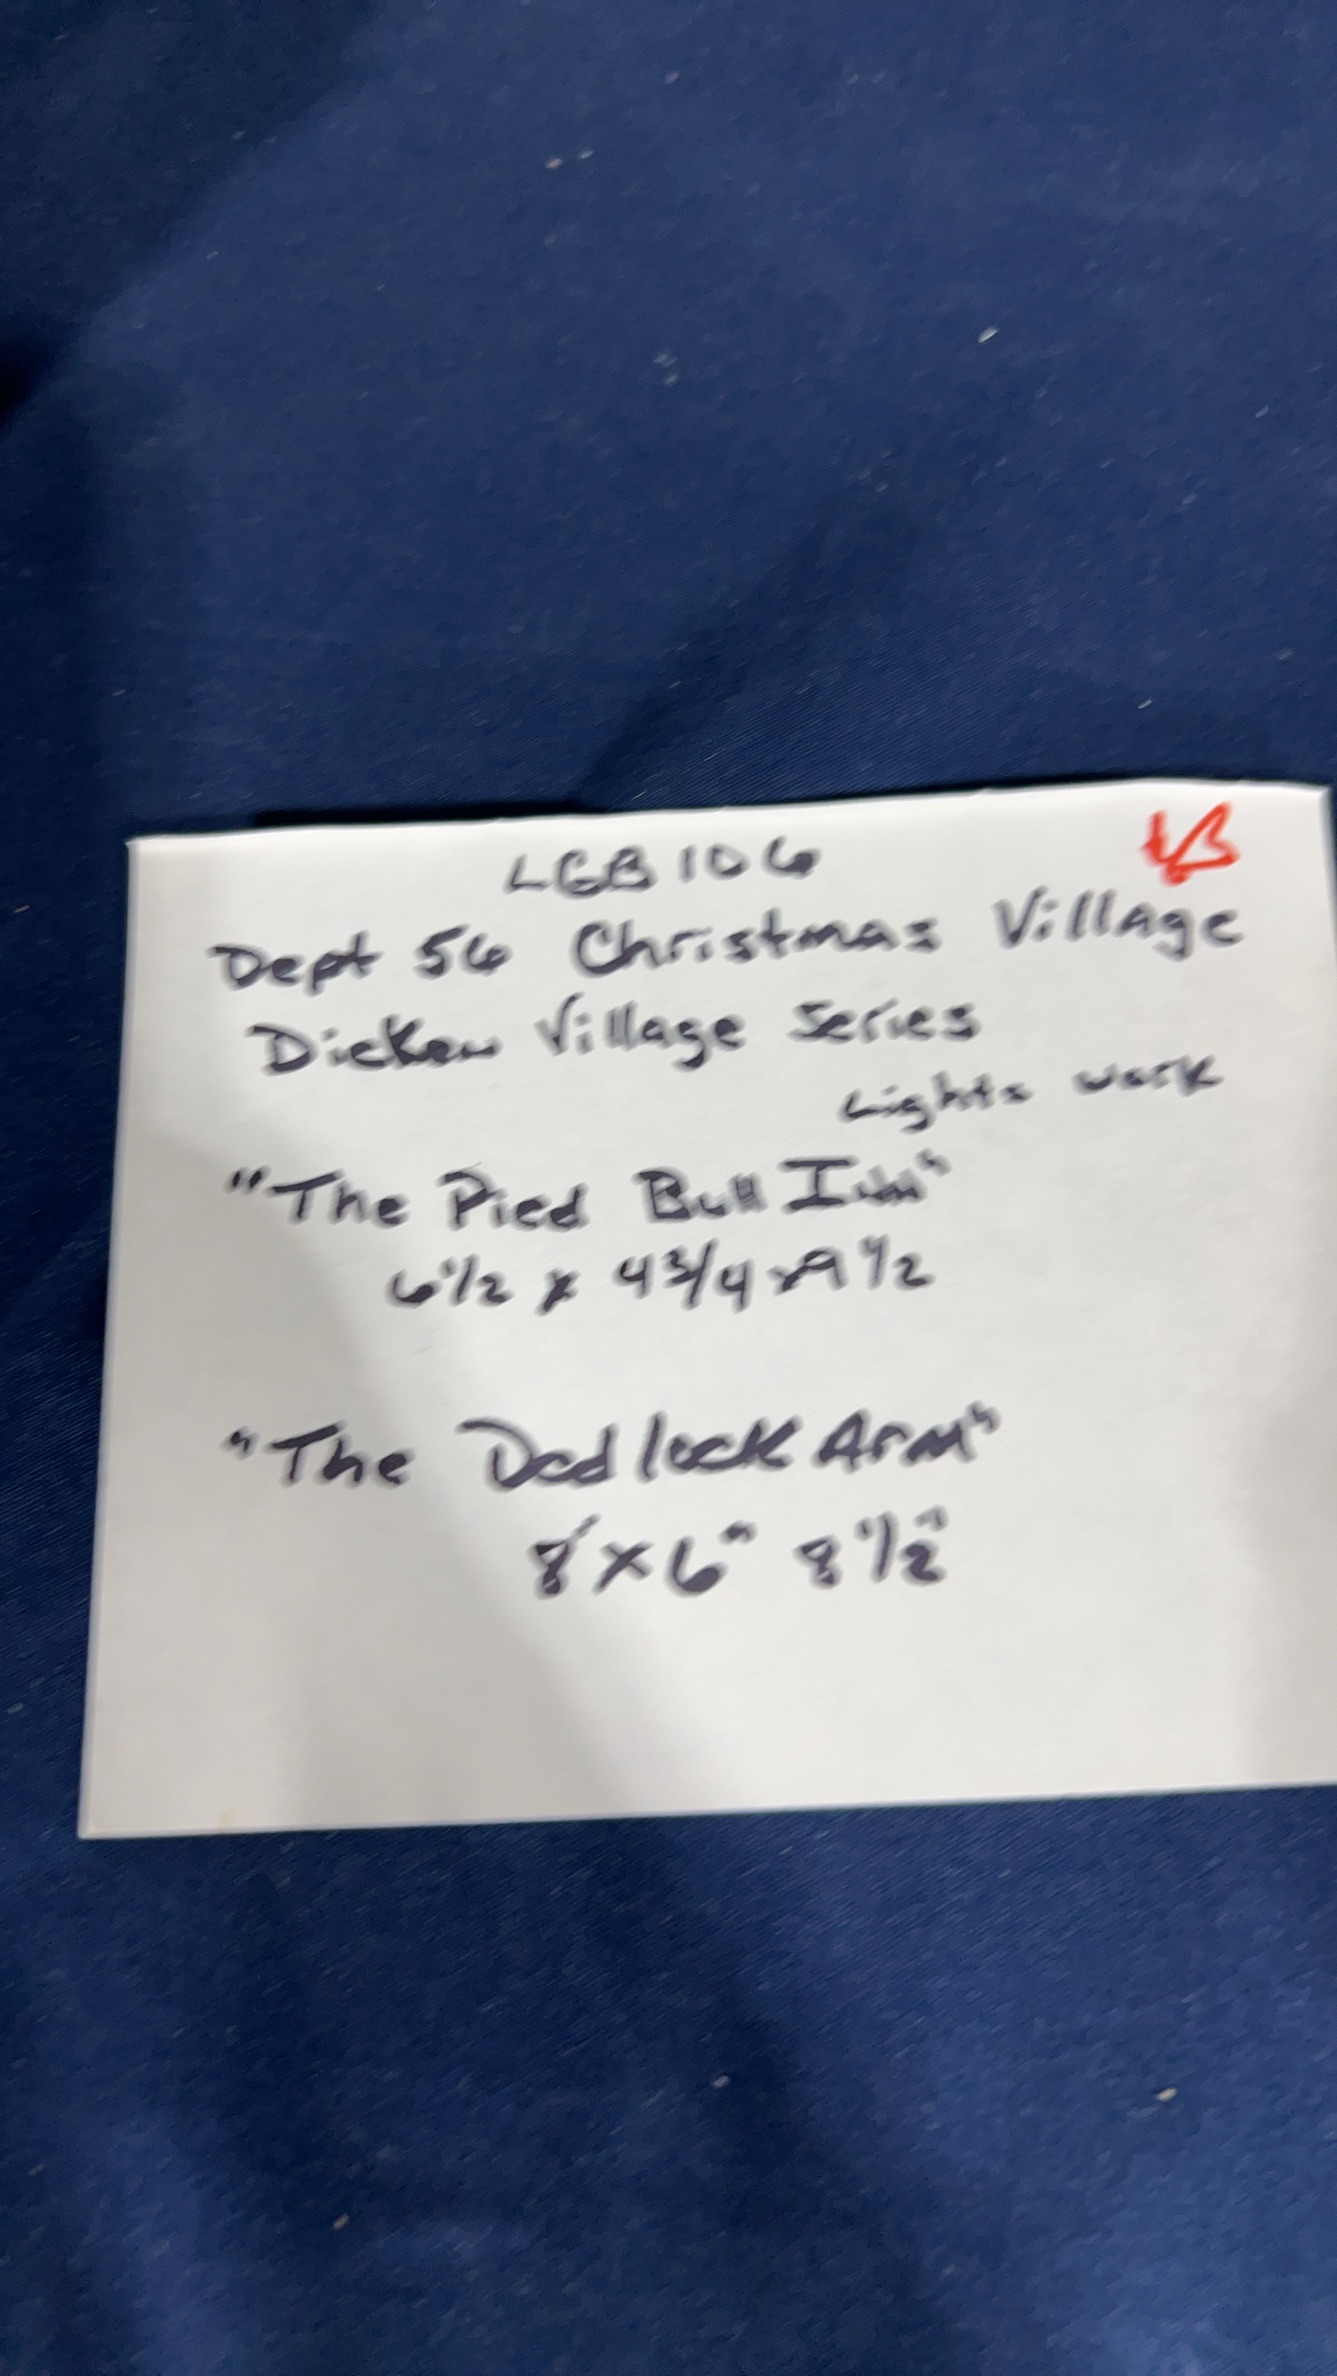 LGB 106
Dept 56 Christmas Village
Dicken Village Series
Lights work
"The Pied Bull Inn"
6 1/2 x 4 3/4 x 9 1/2
"The Dedlock Arm"
8" x 6" 8 1/2"